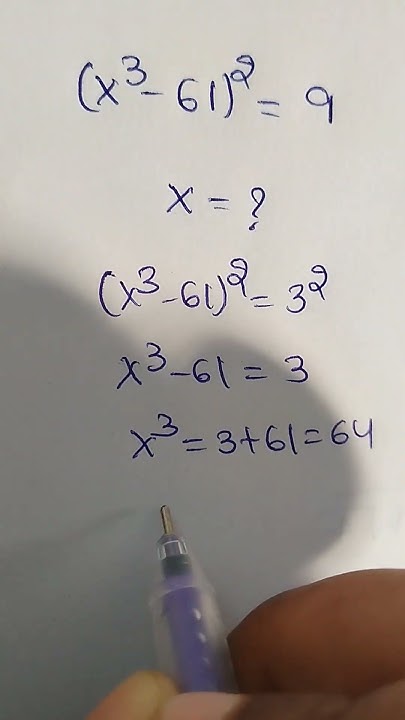 (x³ - 61)² = 9
x = ?
(x³ - 61)² = 3²
x³ - 61 = 3
x³ = 3 + 61 = 64